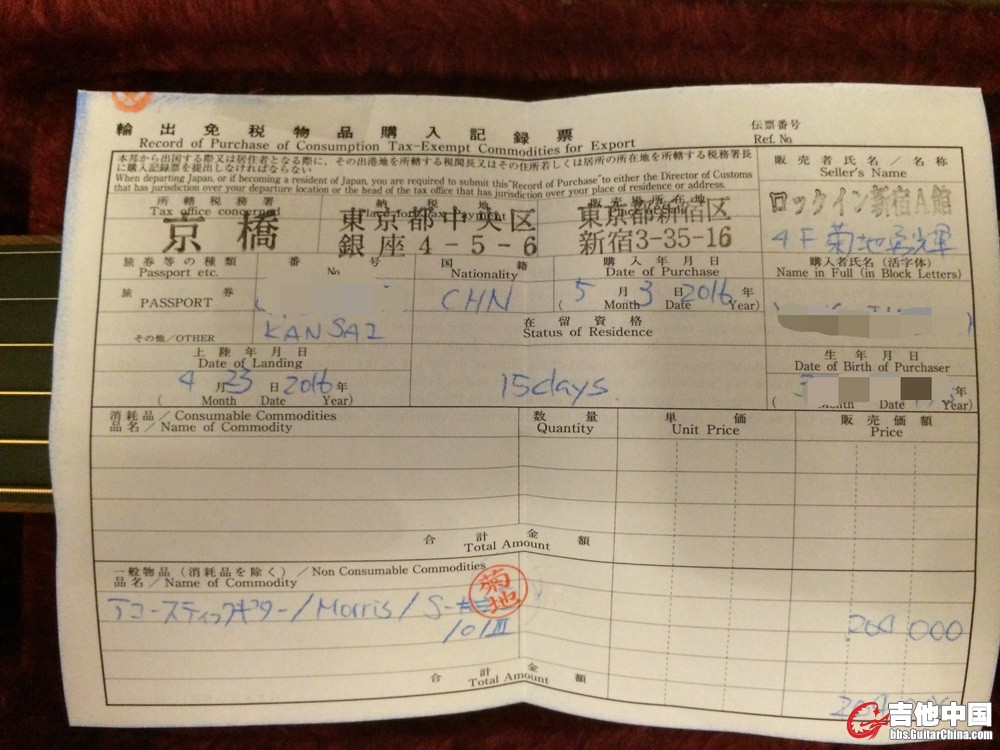 輸出免税物品購入記録票
Record of Purchase of Consumption Tax-Exempt Commodities for Export
伝票番号
Ref. No.
本邦から出国する際又は居住者となる際に、その出港地を所轄する税関長又はその住所若しくは居所の所在地を所轄する税務署長
に購入記録票を提出しなければならない
When departing Japan, or if becoming a resident of Japan, you are required to submit this "Record of Purchase" to either the Director of Customs
that has jurisdiction over your departure location or the head of the tax office that has jurisdiction over your place of residence or address.
販売者氏名／名称
Seller's Name
ロックイン新宿A館
4F 菊地
所轄税務署
Tax office concerned
京橋
納税地
Place for Tax Payment
東京都中央区
銀座4-5-6
販売場所在地
東京都新宿区
新宿3-35-16
旅券等の種類
Passport etc.
番号
No
国籍
Nationality
購入年月日
Date of Purchase
購入者氏名（活字体）
Name in Full (in Block Letters)
旅券
PASSPORT
CHN
5月3日2016年
( Month Date Year)
その他／OTHER
KANSAI
在留資格
Status of Residence
上陸年月日
Date of Landing
4月23日2016年
( Month Date Year)
15days
生年月日
Date of Birth of Purchaser
年
Date Year)
消耗品／Consumable Commodities
品名／Name of Commodity
数量
Quantity
単価
Unit Price
販売価額
Price
合計金額
Total Amount
一般物品（消耗品を除く）／Non Consumable Commodities
品名／Name of Commodity
菊地
アコースティックギター/Morris/S-
101III
000
合計金額
Total Amount
吉他中国
bbs.GuitarChina.com